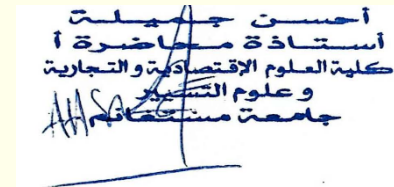 أحسن جميلة
أستاذة محاضرة أ
كلية العلوم الإقتصادية والتجارية
وعلوم التسيير
جامعة مستغانم